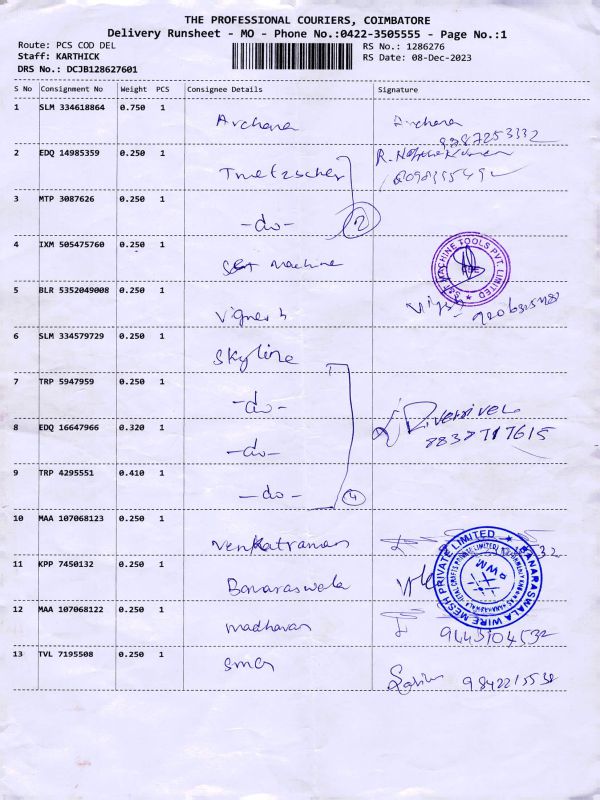 THE PROFESSIONAL COURIERS, COIMBATORE
Delivery Runsheet - MO - Phone No.:0422-3505555 - Page No.:1
Route: PCS COD DEL
RS No.: 1286276
Staff: KARTHICK
RS Date: 08-Dec-2023
DRS No.: DCJB128627601
S No Consignment No Weight PCS Consignee Details Signature
1 SLM 334618864 0.750 1 Archana Archana
9787253332
2 EDQ 14985359 0.250 1 Truetzschler
3 MTP 3087626 0.250 1 -do- 2
4 IXM 505475760 0.250 1 S&T Machine
MACHINE TOOLS PVT. LIMITED
5 BLR 5352049008 0.250 1 Vignesh
6 SLM 334579729 0.250 1 Skyline
7 TRP 5947959 0.250 1 -do-
8 EDQ 16647966 0.320 1 -do-
8838777615
9 TRP 4295551 0.410 1 -do- 4
10 MAA 107068123 0.250 1 Venkatraman
11 KPP 7450132 0.250 1 Banaraswala
BANARASWALA WIRE MESH PRIVATE LIMITED
12 MAA 107068122 0.250 1 madhavan
9443104532
13 TVL 7195508 0.250 1